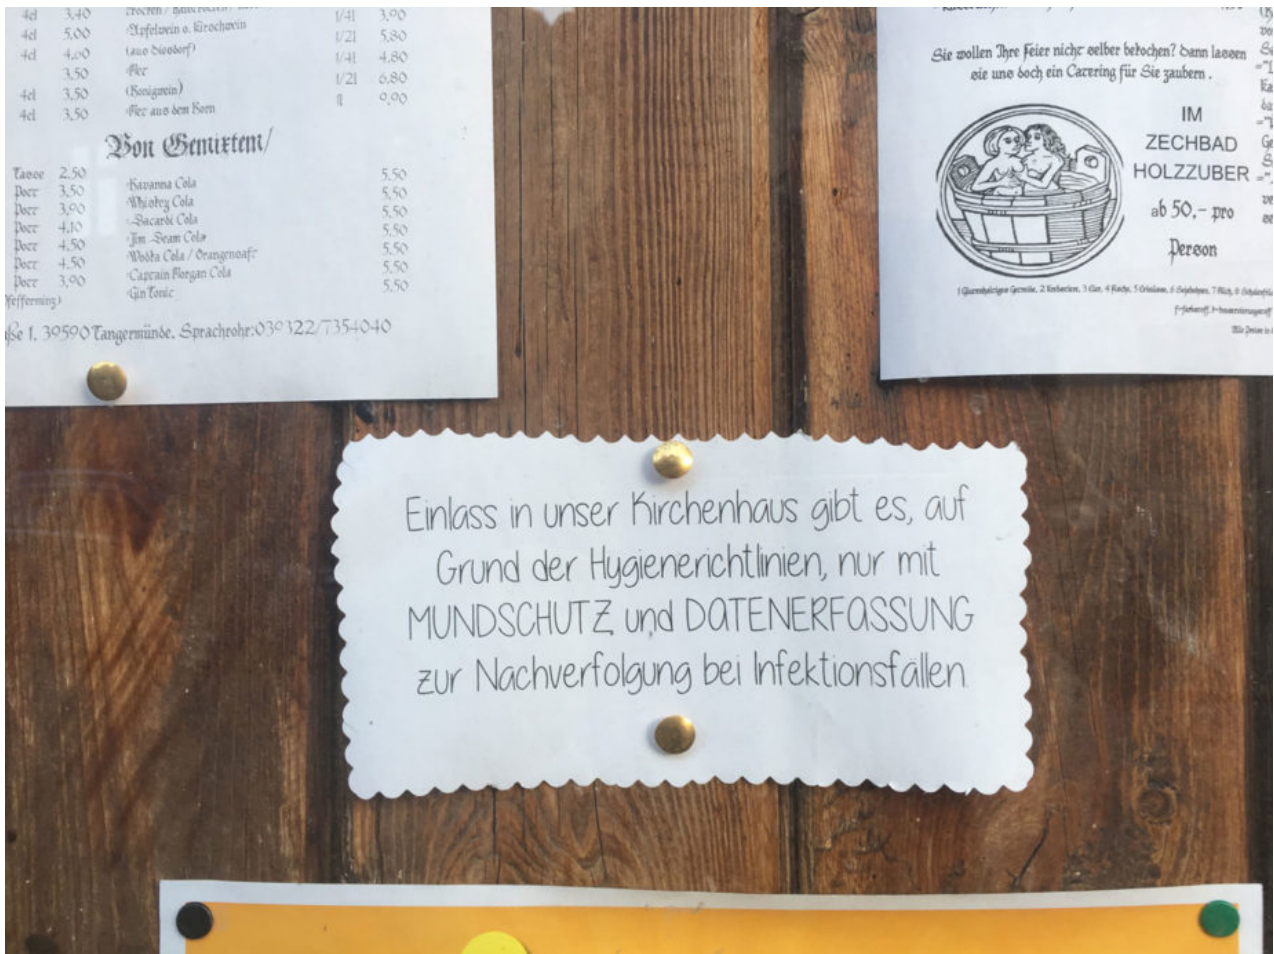 4cl 3,40
4cl 5,00 Apfelwein o. Kirschwein 1/4l 3,90
4cl 4,00 (aus Diesdorf) 1/2l 5,80
3,50 Met 1/4l 4.80
4cl 3,50 (Honigwein) 1/2l 6,80
4cl 3,50 Met aus dem Horn 1l 9,90
Von Gemixtem/
Tasse 2,50 Havanna Cola 5,50
Pott 3,50 Whiskey Cola 5,50
Pott 3,90 Bacardi Cola 5,50
Pott 4,10 Jim Beam Cola 5,50
Pott 4,50 Wodka Cola / Orangensaft 5,50
Pott 4,50 Captain Morgan Cola 5,50
Pott 3,90 Gin Tonic 5,50
Pfefferminz)
ße 1, 39590 Tangermünde, Sprachrohr:039322/7354040
Sie wollen Ihre Feier nicht selber bekochen? dann lassen
sie uns doch ein Catering für Sie zaubern .
IM
ZECHBAD
HOLZZUBER
ab 50,- pro
Person
Einlass in unser Kirchenhaus gibt es, auf
Grund der Hygienerichtlinien, nur mit
MUNDSCHUTZ und DATENERFASSUNG
zur Nachverfolgung bei Infektionsfällen.